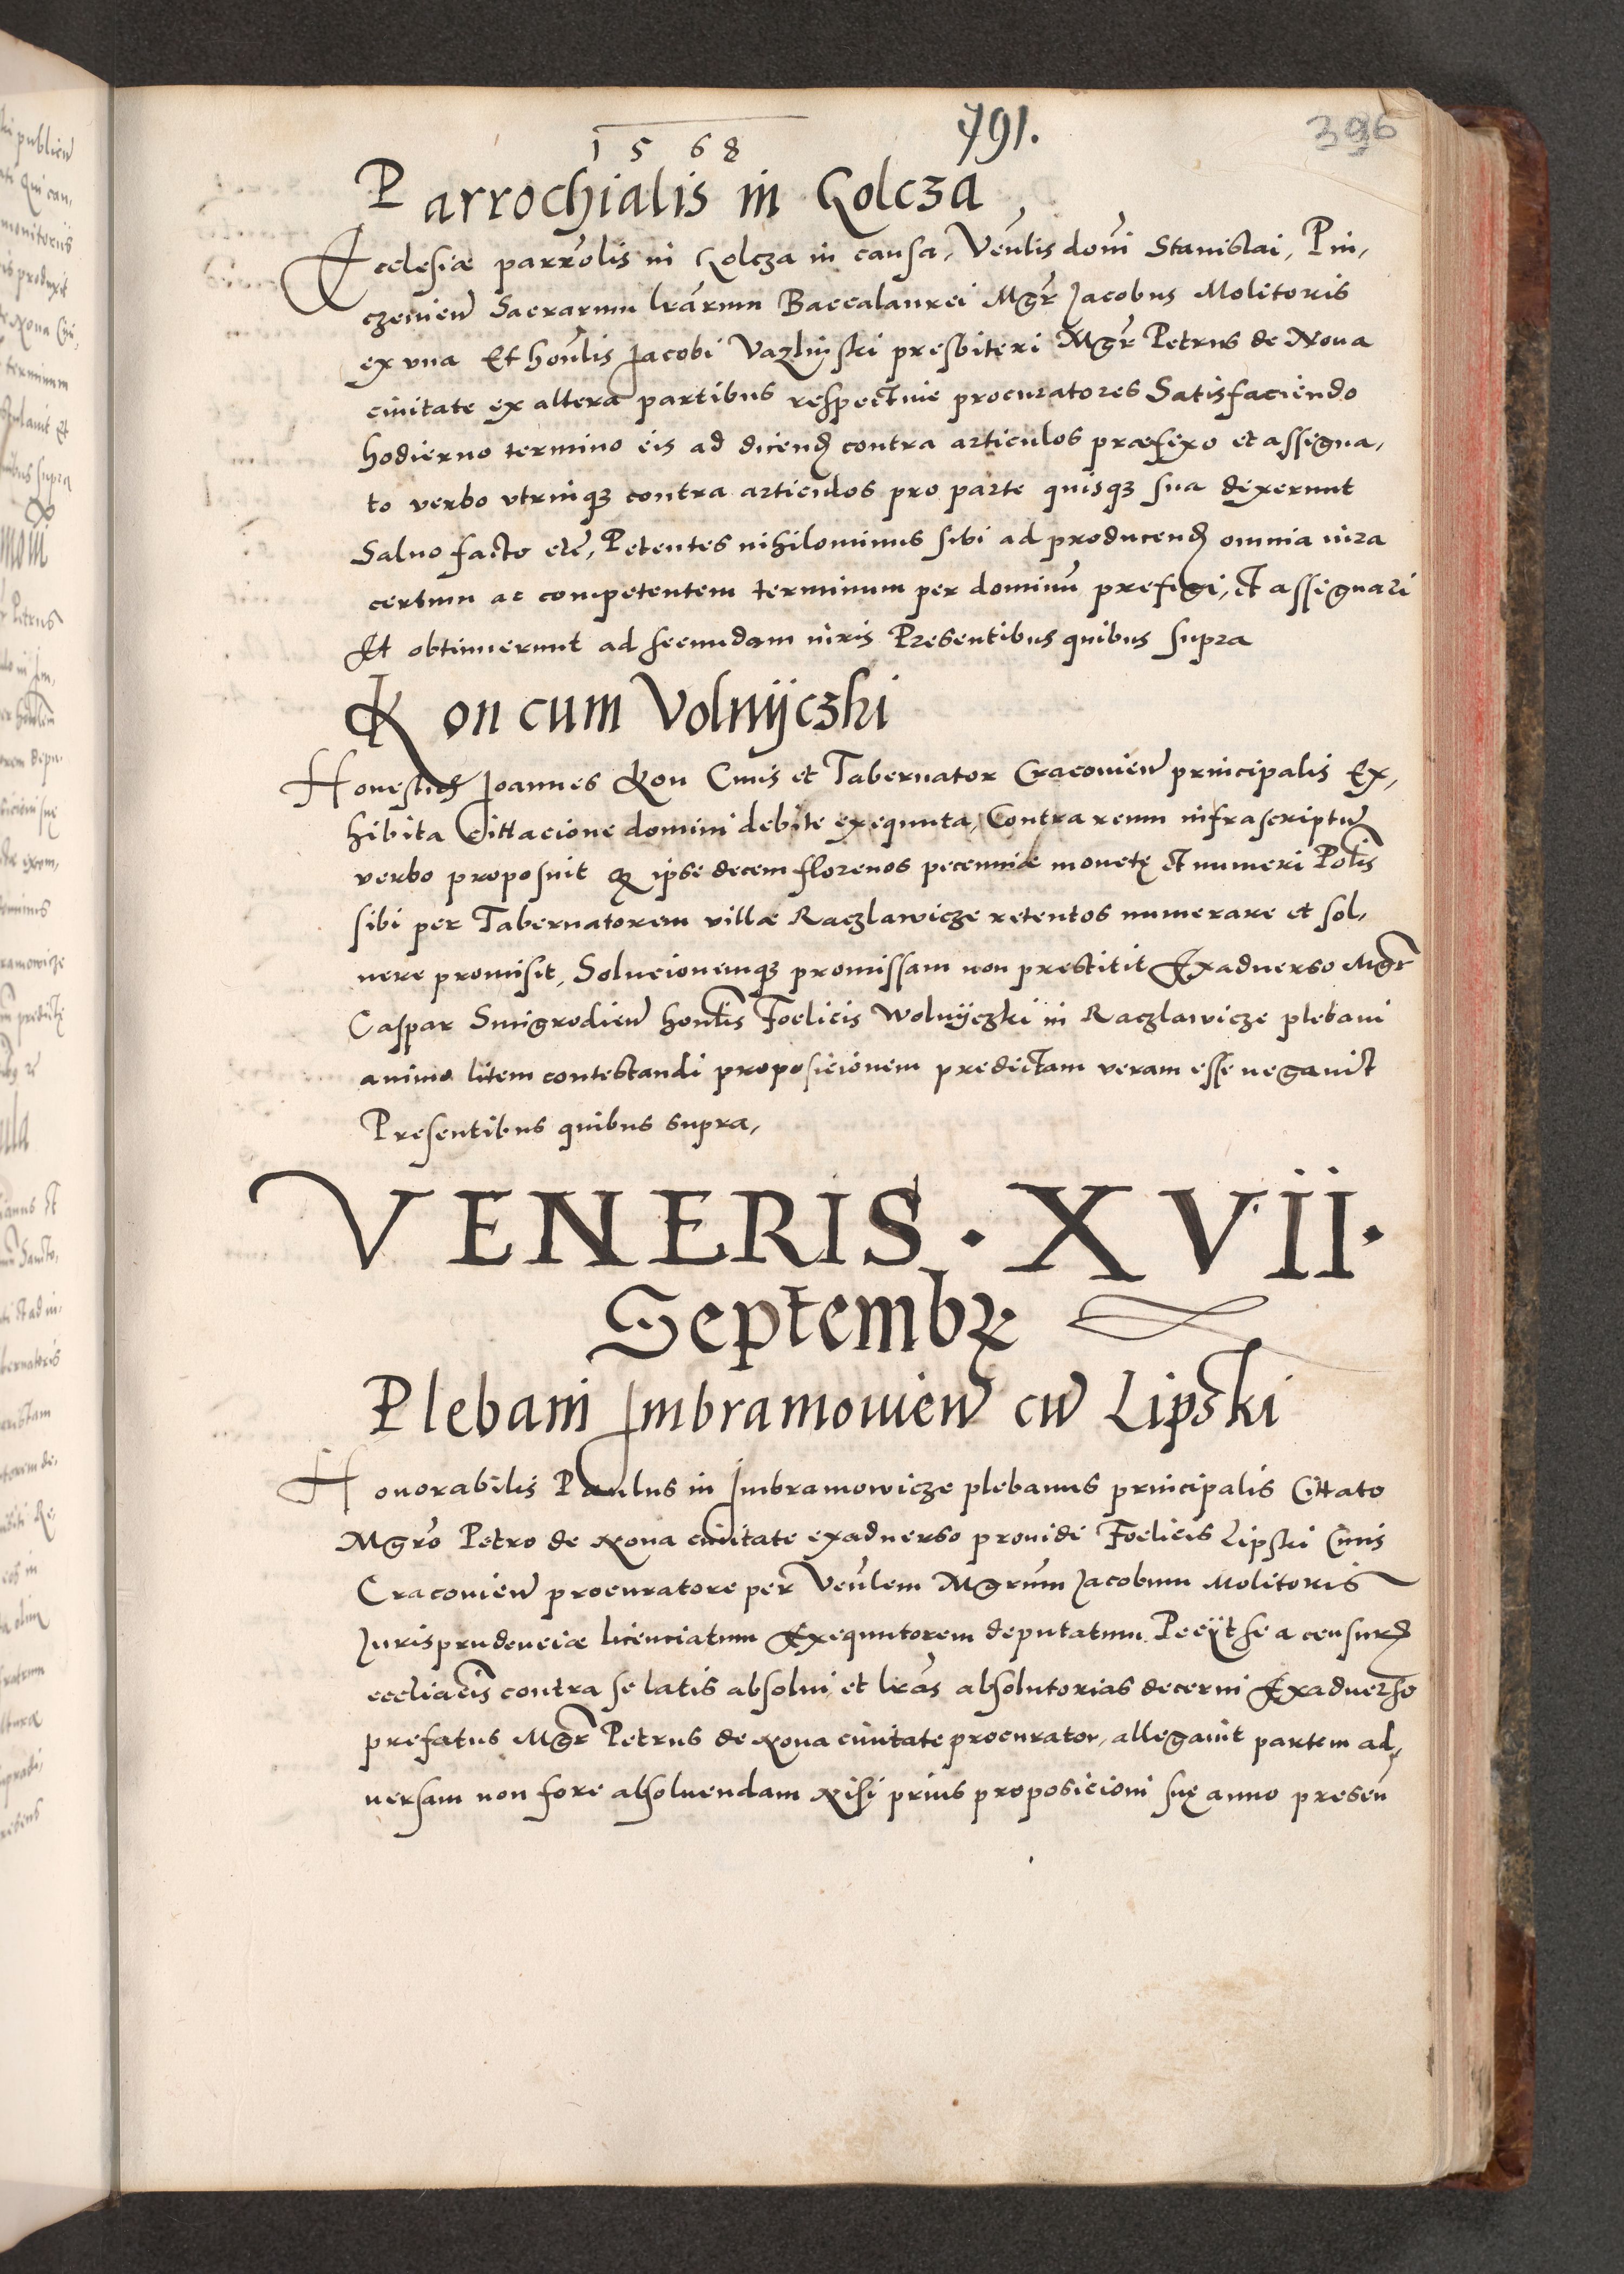 1568
791.
396
Parrochialis in Golcza
Ecclesiæ parrolis in Golcza in causa, Venlis domi Stanislai, Pin,
czenien Sacrarum lrarum Baccalaurei Mgr Jacobus Molitoris
ex vna Et honlis Jacobi Vazlinski presbiteri Mgr Petrus de Noua
ciuitate ex altera partibus respectiue procuratores Satisfaciendo
hodierno termino eis ad dicend contra articulos præfixo et assigna,
to verbo vtrinqz contra articulos pro parte quisqz sua dixerunt
Saluo facto etc, Petentes nihilominus sibi ad producend omnia iura
certum ac competentem terminum per dominu prefigi, et assignari
Et obtinuerunt ad secundam iuris Presentibus quibus supra
Kon cum Volnÿczki
Honestus Joannes Kon Ciuis et Tabernator Cracouien principalis Ex,
hibita Cittacione domini debite exequuta, Contra reum infrascriptu
verbo proposuit q ipse decem florenos pecuniæ monetę et numeri Polis
sibi per Tabernatorem villæ Raczlawicze retentos numerare et sol,
uere promisit, Solucionemqz promissam non prestitit Exaduerso Mgr
Caspar Smigrodien honlis Foelicis Wolnÿczki in Raczlawicze plebani
animo litem contestandi proposicionem predictam veram esse negauit
Presentibus quibus supra,
VENERIS · XVII ·
Septembr
Plebani Imbramouien cu Lipski
Honorabilis Paulus in Imbramowicze plebanus principalis Cittato
Mgro Petro de Noua ciuitate exaduerso prouidi Foelicis Lipski Ciuis
Cracouien procuratore per Venlem Mgrum Jacobum Molitoris
Jurisprudenciæ licenciatum Exequutorem deputatum Peÿt se a censuris
eccliacis contra se latis absolui et lras absolutorias decerni Exaduerso
prefatus Mgr Petrus de Noua ciuitate procurator, allegauit partem ad,
uersam non fore absoluendam Nisi prius proposicioni suę anno presen